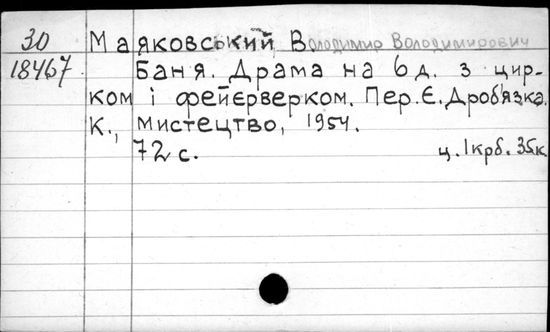 30
18467
Маяковський, Володимир Володимирович
Баня. Драма на 6 д. з цир-
ком і фейєрверком. Пер. Є. Дроб'язка.
К., Мистецтво, 1954.
72 с.
ц. 1крб. 35к.